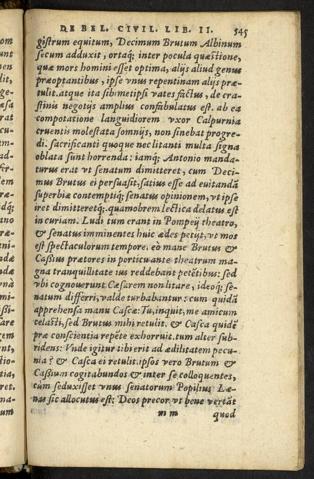 DE BEL. CIVIL. LIB. II. 545
giſtrum equitum, Decimum Brutum Albinum
ſecum adduxit, ortaq; inter pocula quæſtione,
quæ mors homini eſſet optima, alijs aliud genus
præoptantibus, ipſe vnus repentinam alijs præ-
tulit. atque ita ſibimetipſi vates factus, de cra-
ſtinis negotijs amplius confabulatus eſt. ab ea
compotatione languidiorem vxor Calpurnia
cruentis moleſtata ſomnijs, non ſinebat progre-
di. ſacrificanti quoque nec litanti multa ſigna
oblata ſunt horrenda: iamq; Antonio manda-
turus erat vt ſenatum dimitteret, cum Deci-
mus Brutus ei perſuaſit, ſatius eſſe ad euitandā
ſuperbiæ contemptiq; ſenatus opinionem, vt ipſe
iret dimitteretq;. quamobrem lectica delatus eſt
in curiam. Ludi tum erant in Pompeij theatro,
& ſenatus imminentes huic ædes petijt, vt mos
eſt ſpectaculorum tempore. eò manè Brutus &
Caßius prætores in porticu ante theatrum ma-
gna tranquillitate ius reddebant petētibus: ſed
vbi cognouerunt Cæſarem non litare, ideoq; ſe-
natum differri, valde turbabantur: cum quidā
apprehenſa manu Caſcæ: Tu, inquit, me amicum
celaſti, ſed Brutus mihi retulit. & Caſca quidē
præ conſcientia repēte exhorruit. tum alter ſub-
ridens: Vnde igitur tibi erit ad ædilitatem pecu-
nia? & Caſca ei retulit. ipſos vero Brutum &
Caßium cogitabundos & inter ſe colloquentes,
cum ſeduxiſſet vnus ſenatorum Popilius Læ-
nas ſic allocutus eſt: Deos precor vt bene vertāt
m m quod